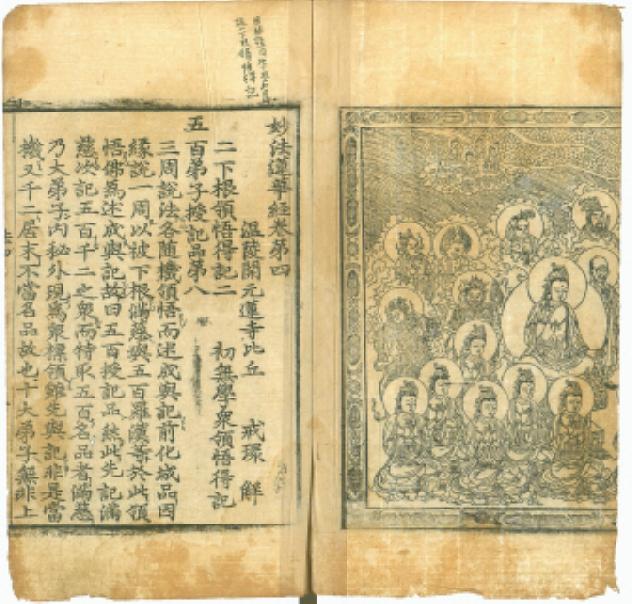 妙法蓮華經卷第四
溫陵開元蓮寺比丘 戒環 解
二下根領悟得記二 初無學衆領悟得記
五百弟子授記品第八
三周說法各隨機領悟而述成與記前化城品因
緣說一周以被下根滿慈與五百羅漢等於此領
悟佛爲述成與記故曰五百授記品然此先記滿
慈次記五百千二之衆而特取五百名品者滿慈
乃大弟子內秘外現爲衆標領雖先與記非是當
機又千二居末不當名品故也十大弟子無非上